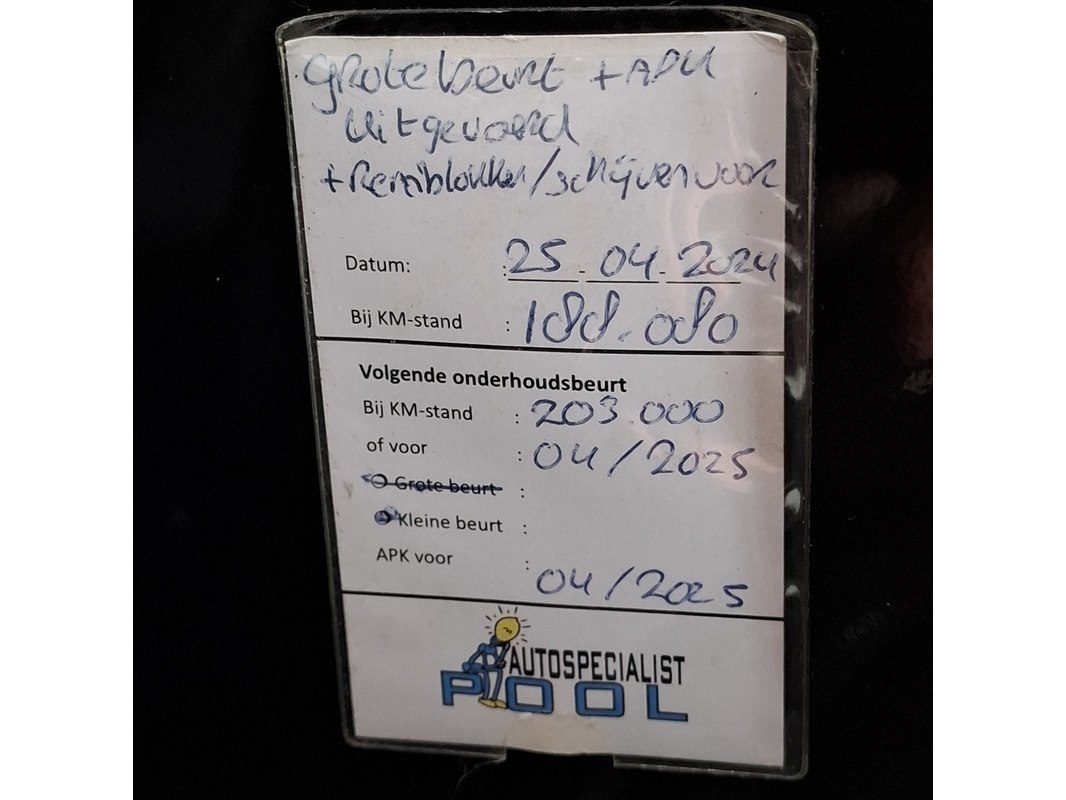 Grote beurt + APK
Uitgevoerd
+ Remblokken/schijven voor
Datum: : 25 - 04 - 2024
Bij KM-stand : 188.080
Volgende onderhoudsbeurt
Bij KM-stand : 203.000
of voor : 04/2025
Grote beurt :
Kleine beurt :
APK voor : 04/2025
AUTOSPECIALIST
POOL